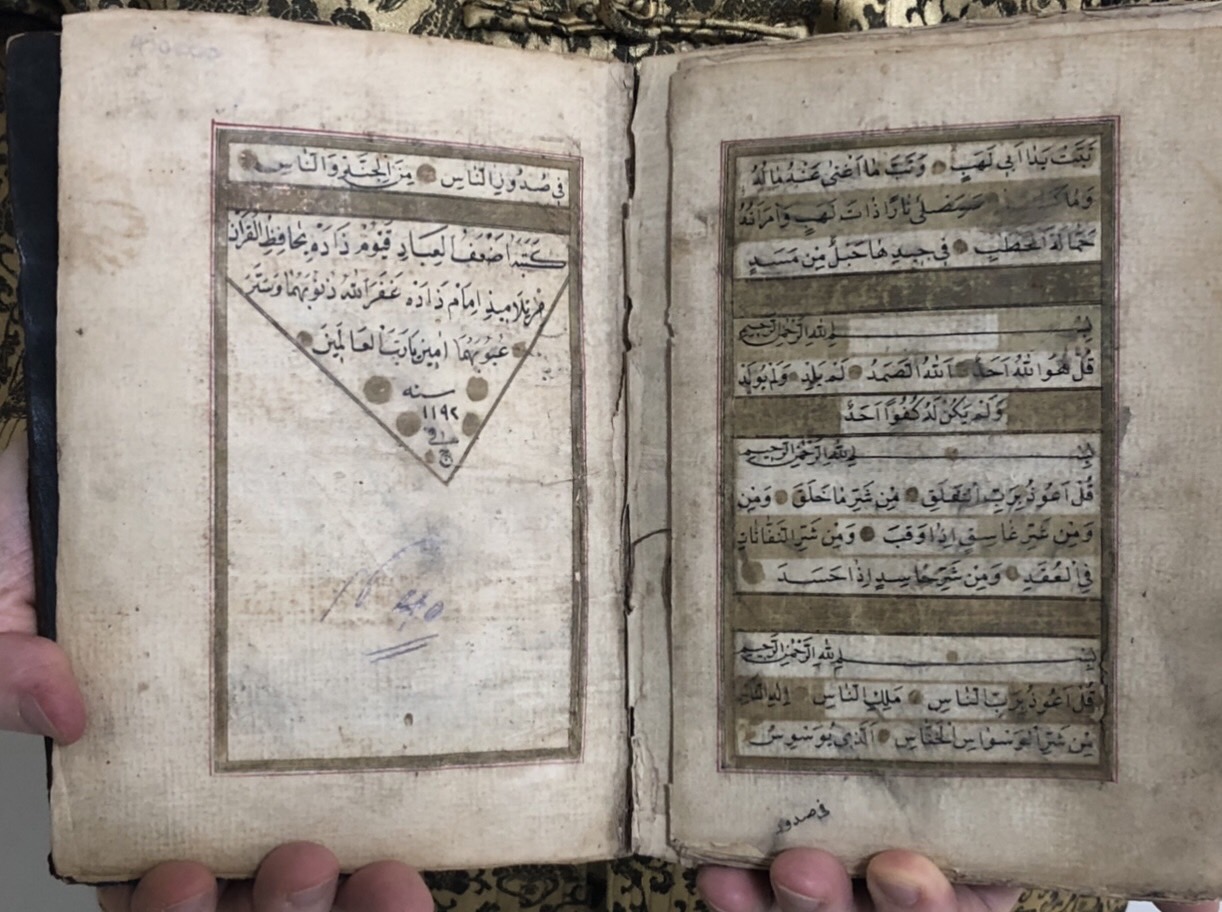 تَبَّتْ يَدَا اَبِى لَهَبٍ وَتَبَّ مَا اَغْنٰى عَنْهُ مَالُهُ
وَمَا سَيَصْلٰى نَارًا ذَاتَ لَهَبٍ وَامْرَاَتُهُ
حَمَّالَةَ الْحَطَبِ فِى جِيدِهَا حَبْلٌ مِنْ مَسَدٍ
بِسْمِ اللّٰهِ الرَّحْمٰنِ الرَّحِيمِ
قُلْ هُوَ اللّٰهُ اَحَدٌ اَللّٰهُ الصَّمَدُ لَمْ يَلِدْ وَلَمْ يُولَدْ
وَلَمْ يَكُنْ لَهُ كُفُوًا اَحَدٌ
بِسْمِ اللّٰهِ الرَّحْمٰنِ الرَّحِيمِ
قُلْ اَعُوذُ بِرَبِّ الْفَلَقِ مِنْ شَرِّ مَا خَلَقَ وَمِنْ
وَمِنْ شَرِّ غَاسِقٍ اِذَا وَقَبَ وَمِنْ شَرِّ النَّفَّاثَاتِ
فِى الْعُقَدِ وَمِنْ شَرِّ حَاسِدٍ اِذَا حَسَدَ
بِسْمِ اللّٰهِ الرَّحْمٰنِ الرَّحِيمِ
قُلْ اَعُوذُ بِرَبِّ النَّاسِ مَلِكِ النَّاسِ اِلٰهِ النَّاسِ
مِنْ شَرِّ الْوَسْوَاسِ الْخَنَّاسِ اَلَّذِى يُوَسْوِسُ
فى صدور
فِى صُدُورِ النَّاسِ مِنَ الْجِنَّةِ وَالنَّاسِ
كَتَبَهُ اَضْعَفُ الْعِبَادِ قَيُّوم زَادَه بحافظ القرآن
من تلاميذ امام زاده غَفَرَ اللّٰهُ ذُنُوبَهُمَا وَسَتَرَ
عُيُوبَهُمَا اٰمِين يَا رَبَّ الْعَالَمِينَ
سنه
١١٩٢
فى